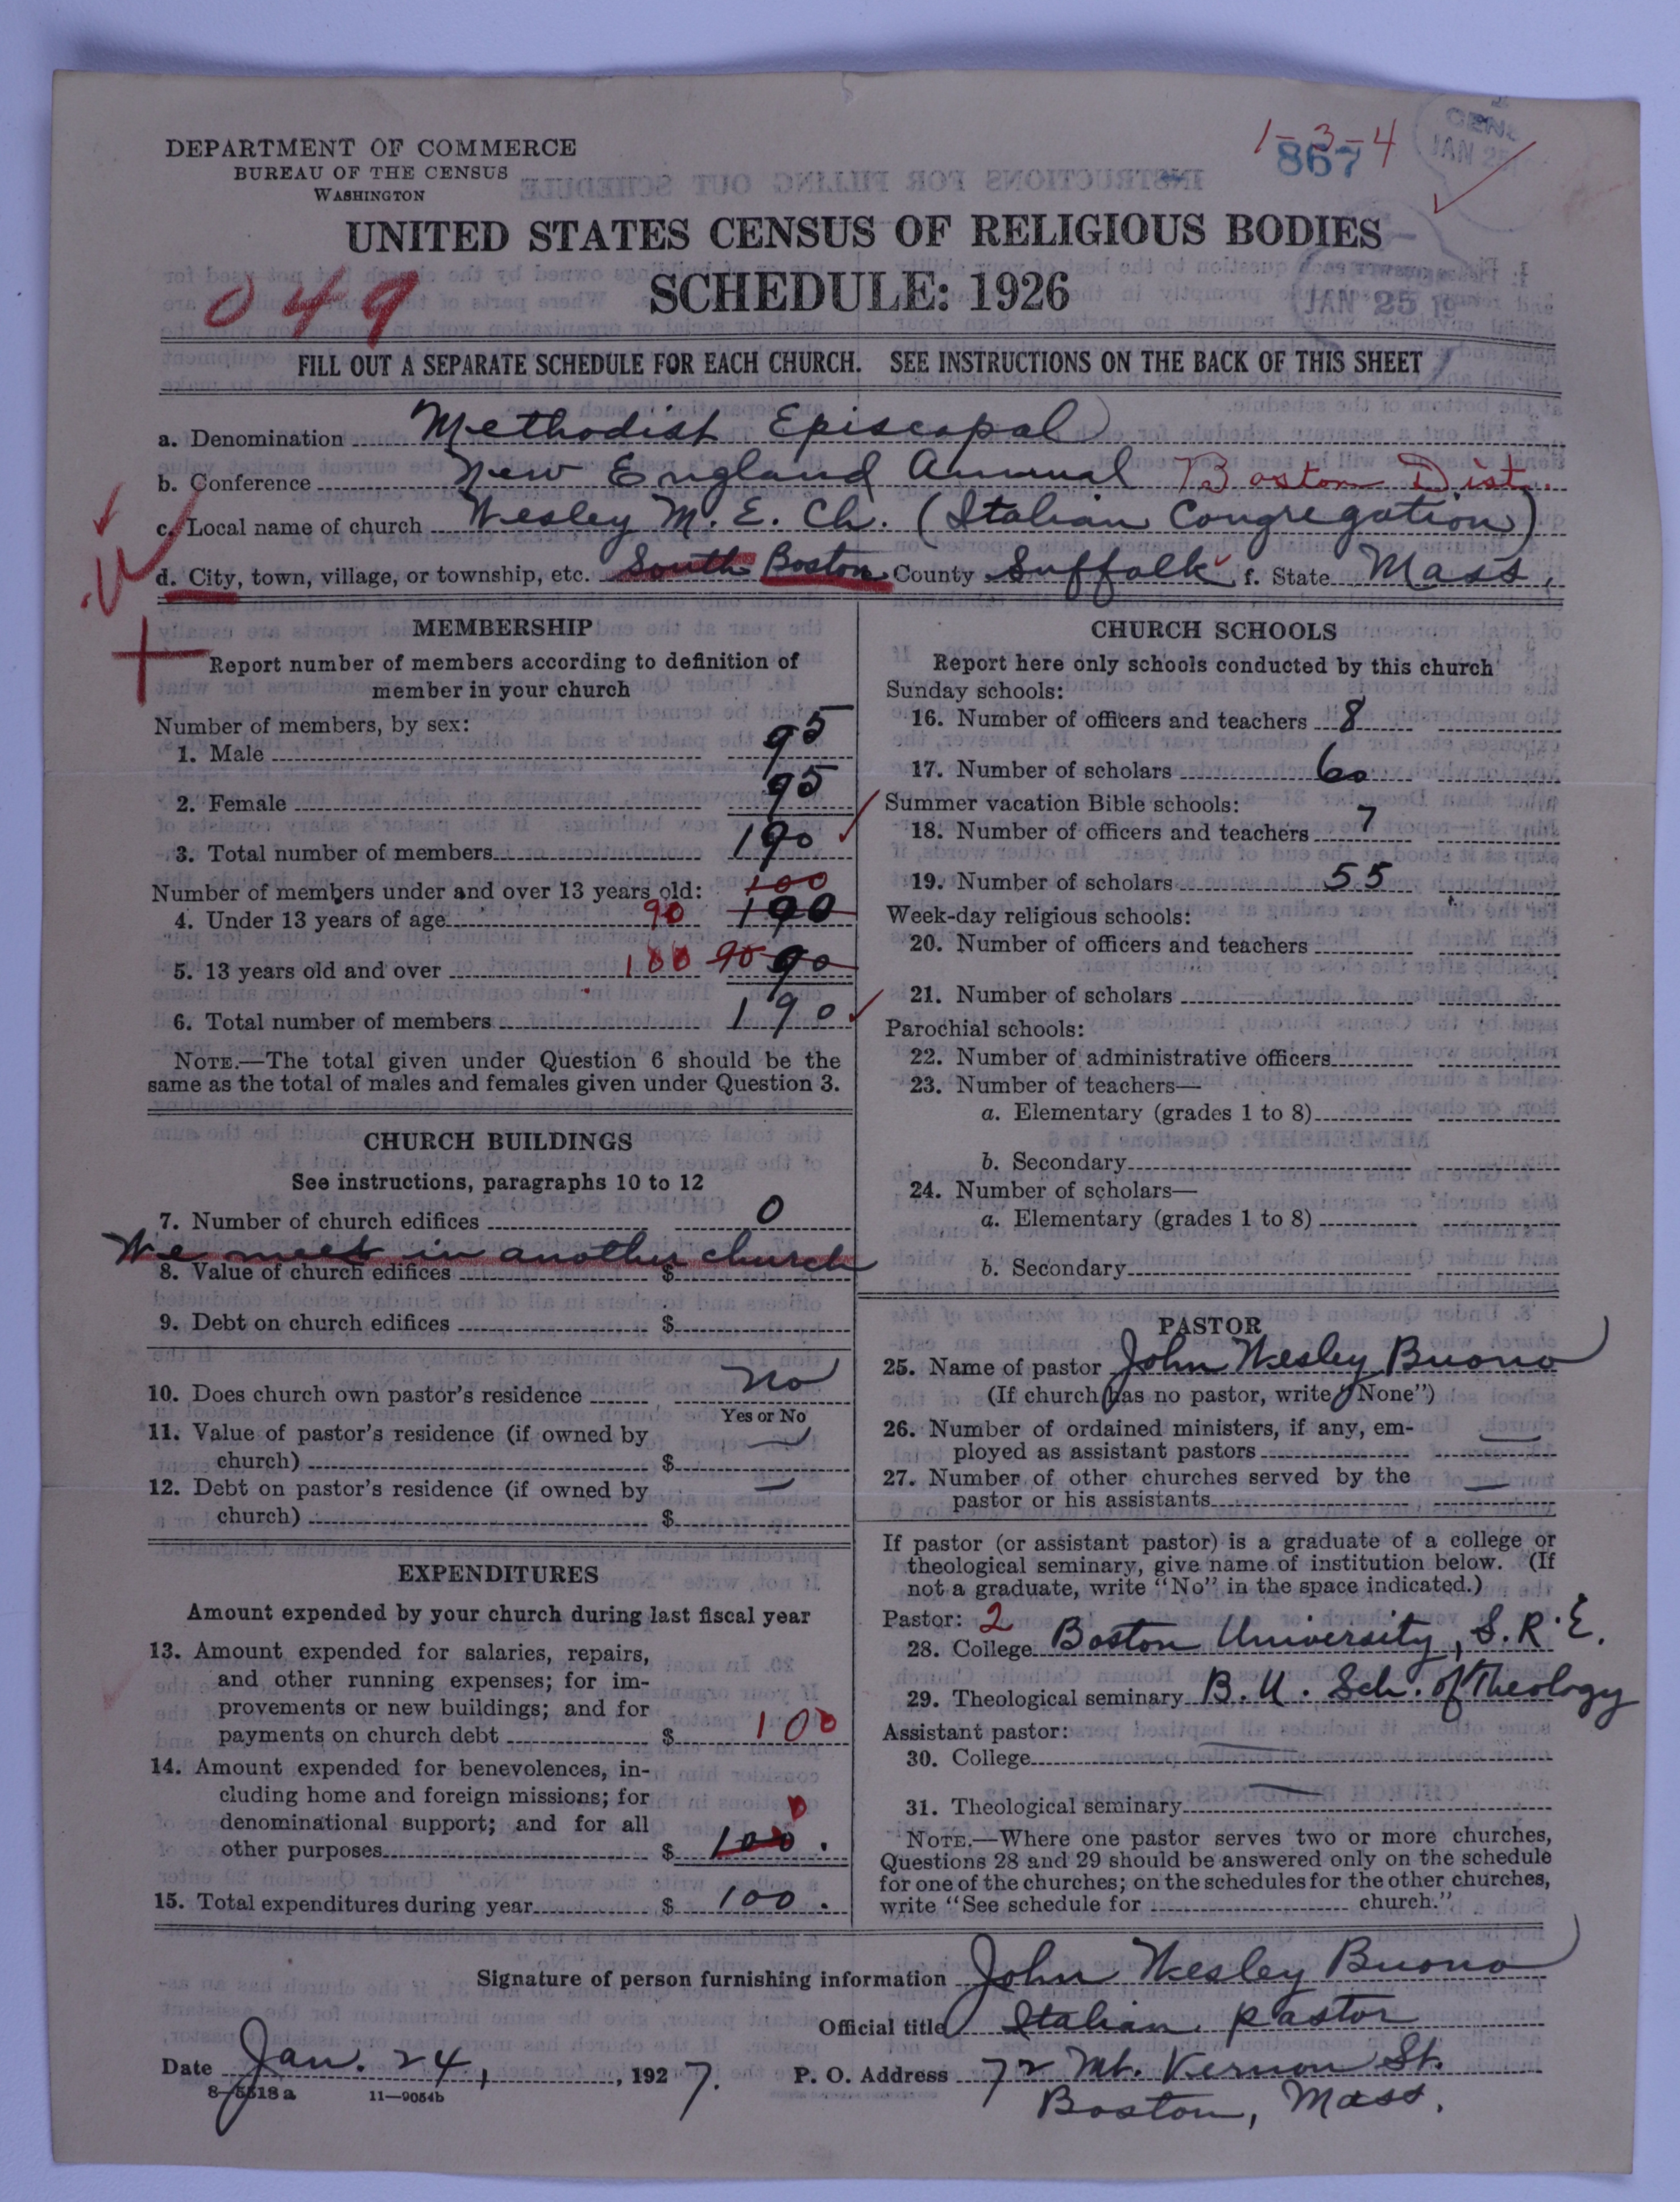 DEPARTMENT OF COMMERCE
BUREAU OF THE CENSUS
WASHINGTON
1-3-4
867
JAN 25
UNITED STATES CENSUS OF RELIGIOUS BODIES
SCHEDULE: 1926
049
JAN 25 19
FILL OUT A SEPARATE SCHEDULE FOR EACH CHURCH. SEE INSTRUCTIONS ON THE BACK OF THIS SHEET
a. Denomination Methodist Episcopal
b. Conference New England Annual Boston Dist.
c. Local name of church Wesley M. E. Ch. (Italian Congregation)
d. City, town, village, or township, etc. South Boston County Suffolk f. State Mass.
MEMBERSHIP
Report number of members according to definition of
member in your church
Number of members, by sex:
1. Male 95
2. Female 95
3. Total number of members 190
Number of members under and over 13 years old: 100
4. Under 13 years of age 90 100
5. 13 years old and over 100 90 90
6. Total number of members 190
NOTE.—The total given under Question 6 should be the
same as the total of males and females given under Question 3.
CHURCH BUILDINGS
See instructions, paragraphs 10 to 12
7. Number of church edifices 0
We meet in another church
8. Value of church edifices $
9. Debt on church edifices $
10. Does church own pastor's residence No
Yes or No
11. Value of pastor's residence (if owned by
church) $ —
12. Debt on pastor's residence (if owned by
church) $ —
EXPENDITURES
Amount expended by your church during last fiscal year
13. Amount expended for salaries, repairs,
and other running expenses; for im-
provements or new buildings; and for
payments on church debt $ 100
14. Amount expended for benevolences, in-
cluding home and foreign missions; for
denominational support; and for all
other purposes $ 100. 0
15. Total expenditures during year $ 100.
CHURCH SCHOOLS
Report here only schools conducted by this church
Sunday schools:
16. Number of officers and teachers 8
17. Number of scholars 60
Summer vacation Bible schools:
18. Number of officers and teachers 7
19. Number of scholars 55
Week-day religious schools:
20. Number of officers and teachers
21. Number of scholars
Parochial schools:
22. Number of administrative officers
23. Number of teachers—
a. Elementary (grades 1 to 8)
b. Secondary
24. Number of scholars—
a. Elementary (grades 1 to 8)
b. Secondary
PASTOR
25. Name of pastor John Wesley Buono
(If church has no pastor, write "None")
26. Number of ordained ministers, if any, em-
ployed as assistant pastors —
27. Number of other churches served by the
pastor or his assistants —
If pastor (or assistant pastor) is a graduate of a college or
theological seminary, give name of institution below. (If
not a graduate, write "No" in the space indicated.)
Pastor: 2
28. College Boston University, S.R.E.
29. Theological seminary B.U. Sch. of Theology
Assistant pastor:
30. College —
31. Theological seminary —
NOTE.—Where one pastor serves two or more churches,
Questions 28 and 29 should be answered only on the schedule
for one of the churches; on the schedules for the other churches,
write "See schedule for church."
Signature of person furnishing information John Wesley Buono
Official title Italian pastor
Date Jan. 24, 1927. P. O. Address 72 Mt. Vernon St.
8—5518a 11—9054b Boston, Mass.